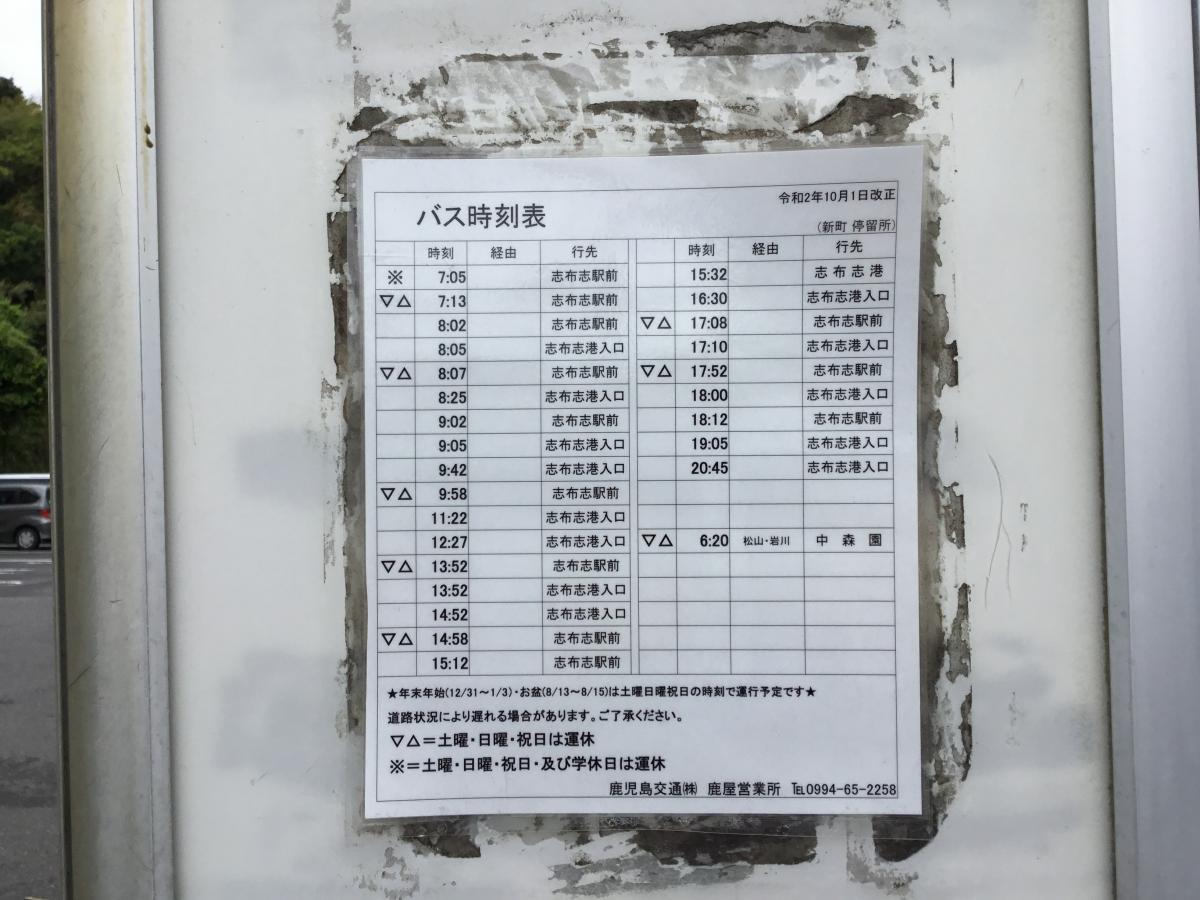 令和2年10月1日改正
バス時刻表
(新町 停留所)
時刻 経由 行先
※ 7:05 志布志駅前
▽△ 7:13 志布志駅前
8:02 志布志駅前
8:05 志布志港入口
▽△ 8:07 志布志駅前
8:25 志布志港入口
9:02 志布志駅前
9:05 志布志港入口
9:42 志布志港入口
▽△ 9:58 志布志駅前
11:22 志布志港入口
12:27 志布志港入口
▽△ 13:52 志布志駅前
13:52 志布志港入口
14:52 志布志港入口
▽△ 14:58 志布志駅前
15:12 志布志駅前
時刻 経由 行先
15:32 志布志港
16:30 志布志港入口
▽△ 17:08 志布志駅前
17:10 志布志港入口
▽△ 17:52 志布志駅前
18:00 志布志港入口
18:12 志布志駅前
19:05 志布志港入口
20:45 志布志港入口
▽△ 6:20 松山・岩川 中森園
★年末年始(12/31～1/3)・お盆(8/13～8/15)は土曜日曜祝日の時刻で運行予定です★
道路状況により遅れる場合があります。ご了承ください。
▽△＝土曜・日曜・祝日は運休
※＝土曜・日曜・祝日・及び学休日は運休
鹿児島交通㈱ 鹿屋営業所 ℡0994-65-2258